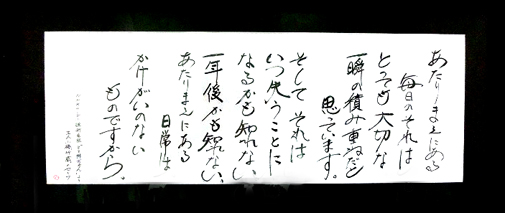 あたりまえにある
毎日のそれは
とても大切な
一瞬の積み重ねだと
思ってます。
そして それは
いつ失うことに
なるかも知れない
一年後かも知れない、
あたりまえにある
日常は
かけがいのない
ものですから。